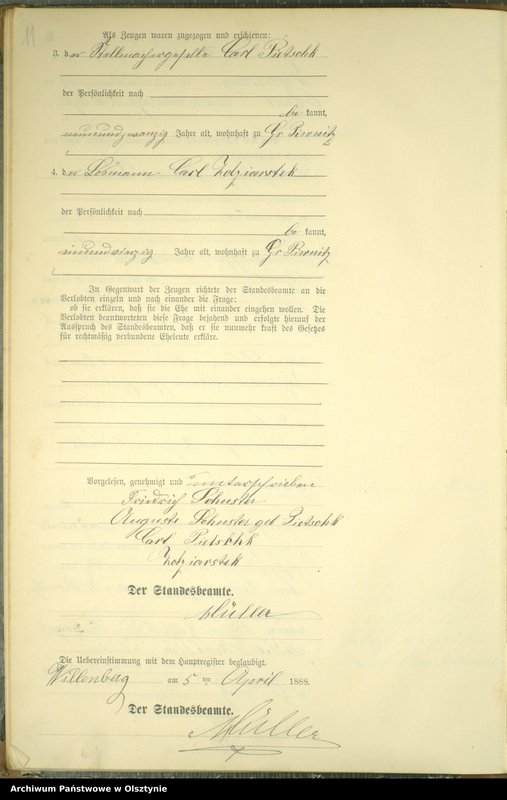 11
Als Zeugen waren zugezogen und erschienen:
3. der Stellmachergeselle Carl Pietschk
der Persönlichkeit nach
be kannt,
neunundzwanzig Jahre alt, wohnhaft zu Gr Piwnitz
4. der Losmann Carl Zdziarstek
der Persönlichkeit nach
be kannt,
einundvierzig Jahre alt, wohnhaft zu Gr Piwnitz
In Gegenwart der Zeugen richtete der Standesbeamte an die
Verlobten einzeln und nach einander die Frage:
ob sie erklären, daß sie die Ehe mit einander eingehen wollen. Die
Verlobten beantworteten diese Frage bejahend und erfolgte hierauf der
Ausspruch des Standesbeamten, daß er sie nunmehr kraft des Gesetzes
für rechtmäßig verbundene Eheleute erkläre.
Vorgelesen, genehmigt und unterschrieben
Friedrich Schuster
Auguste Schuster geb Pietschk
Carl Pietschk
Zdziarstek
Der Standesbeamte.
Müller
Die Uebereinstimmung mit dem Hauptregister beglaubigt.
Willenberg am 5 ten April 1888.
Der Standesbeamte.
Müller
Archiwum Państwowe w Olsztynie